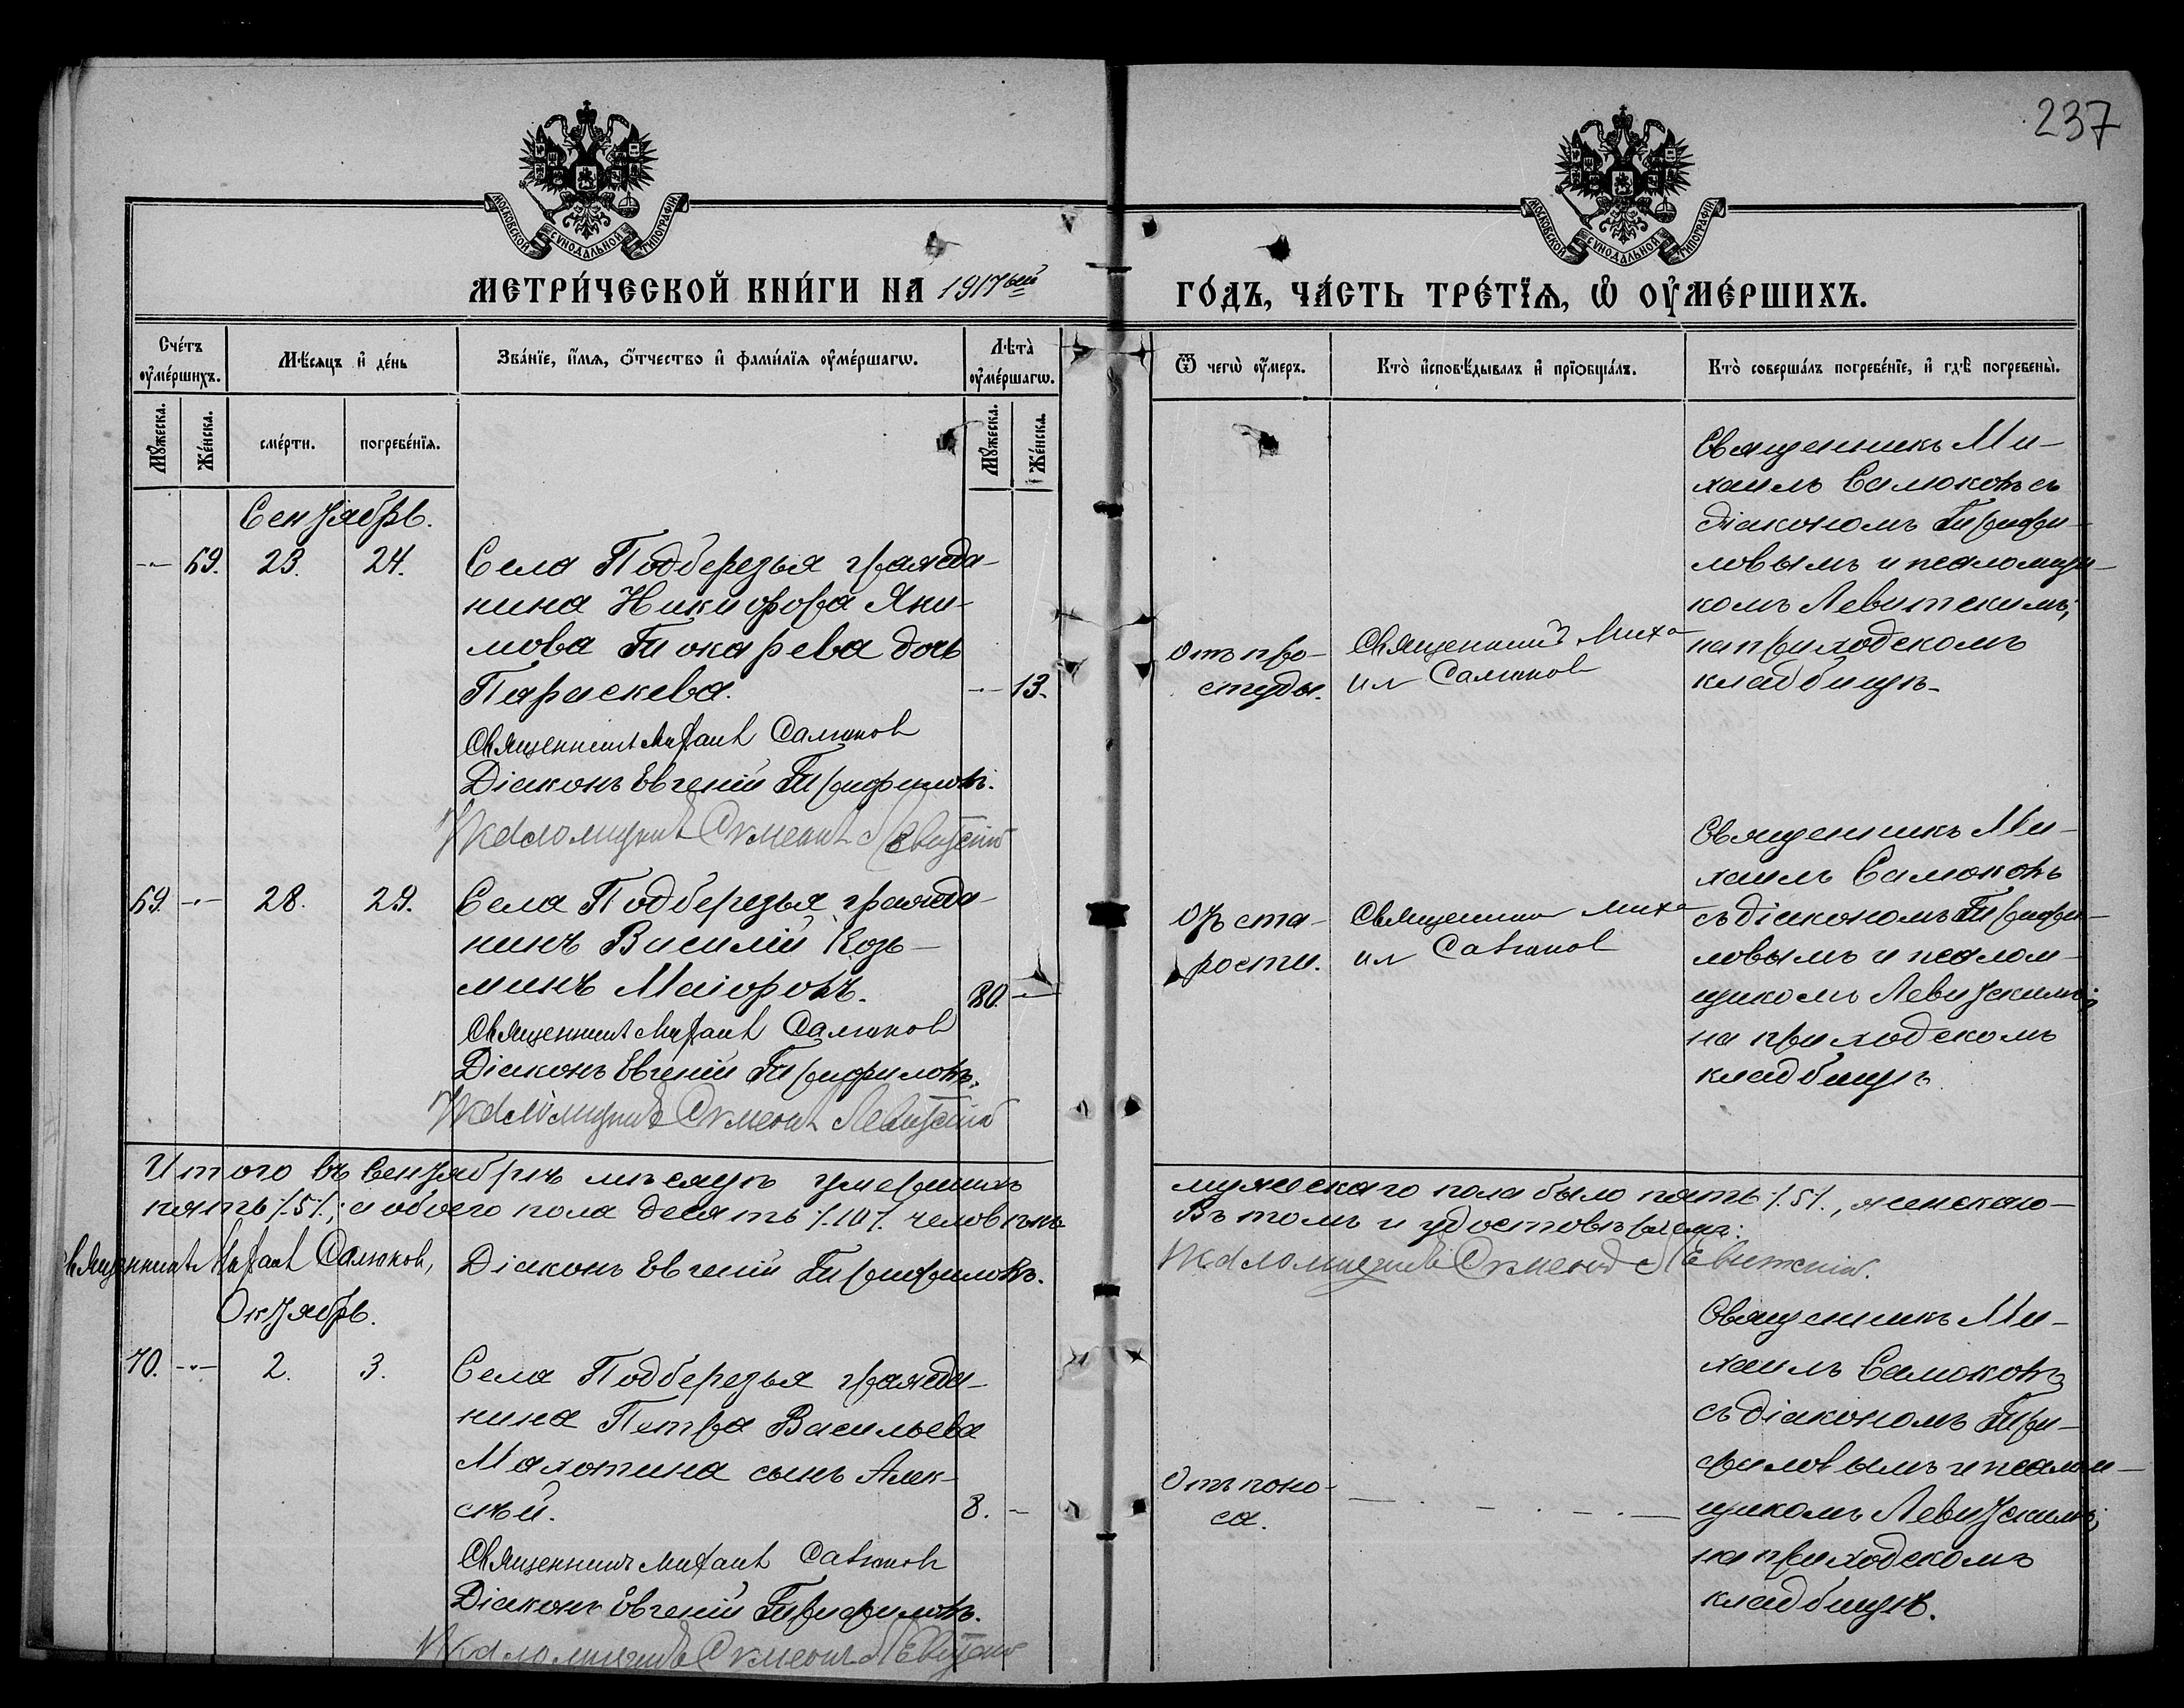 237
МОСКОВСКОЙ СУНОДАЛЬНОЙ ТИПОГРАФІИ
МОСКОВСКОЙ СУНОДАЛЬНОЙ ТИПОГРАФІИ
МЕТРИ́ЧЕСКОЙ КНИ́ГИ НА 1917ый
ГО́ДЪ, ЧА́СТЬ ТРЕ́ТЇѦ, Ѽ ОУ҆МЕ́РШИХЪ.
Сче́тъ оу҆ме́ршихъ.
Мѣ́сѧцъ и҆ де́нь
Зва́нїе, и҆́мѧ, ѻ҆́тчество и҆ фами́лїѧ оу҆ме́ршагѡ.
Лѣ́та̀ оу҆ме́ршагѡ.
Ѿ чегѡ̀ оу҆́меръ.
Кто̀ и҆сповѣ́дывалъ и҆ прїѻбща́лъ.
Кто̀ соверша́лъ погребе́нїе, и҆ гдѣ̀ погребены̀.
Мꙋ́жеска.
Же́нска.
сме́рти.
погребе́нїѧ.
Мꙋ́жеска.
Же́нска.
Сентябрь.
-"- 69. 23. 24.
Села Подберезья гражда-
нина Никифора Яки-
мова Токарева дочь
Параскева. -"- 13.
Священникъ Михаилъ Салюков
Діаконъ Евгеній Трифиловъ.
Псаломщикъ Симеонъ Левитскій
Отъ про-
студы.
Священникъ Миха
ил Салюков
Священникъ Ми-
хаилъ Салюковъ съ
діакономъ Трифи-
ловымъ и псаломщи-
комъ Левитскимъ;
на приходскомъ
кладбищѣ.
69. -"- 28. 29.
Села Подберезья гражда-
нинъ Василій Козь-
минъ Маіоровъ. 80. -"-
Священникъ Михаилъ Салюков
Діаконъ Евгеній Трифиловъ.
Псаломщикъ Симеонъ Левитскій
Отъ ста-
рости.
Священник Миха
ил Салюков
Священникъ Ми-
хаилъ Салюковъ
съ діакономъ Трифи-
ловымъ и псалом-
щикомъ Левитскимъ;
на приходскомъ
кладбищѣ
Итого въ Сентябрѣ мѣсяцѣ умершихъ
мужескаго пола было пять /.5/., женскаго-
пять /.5/.; а обоего пола десять /.10/. человѣкъ
Въ томъ и удостовѣряемъ:
Священникъ Михаилъ Салюков,
Діаконъ Евгеній Трифиловъ.
Псаломщикъ Симеонъ Левитскій.
Октябрь.
70. -"- 2. 3.
Села Подберезья гражда-
нина Петра Васильева
Махотина сынъ Алек-
сѣй. 8. -
Священникъ Михаилъ Салюков
Діаконъ Евгеній Трифиловъ.
Псаломщикъ Симеонъ Левитскій
Отъ поно-
са.
Священникъ Ми-
хаилъ Салюковъ
съ діакономъ Три-
филовымъ и псалом-
щикомъ Левитскимъ;
на приходскомъ
кладбищѣ.